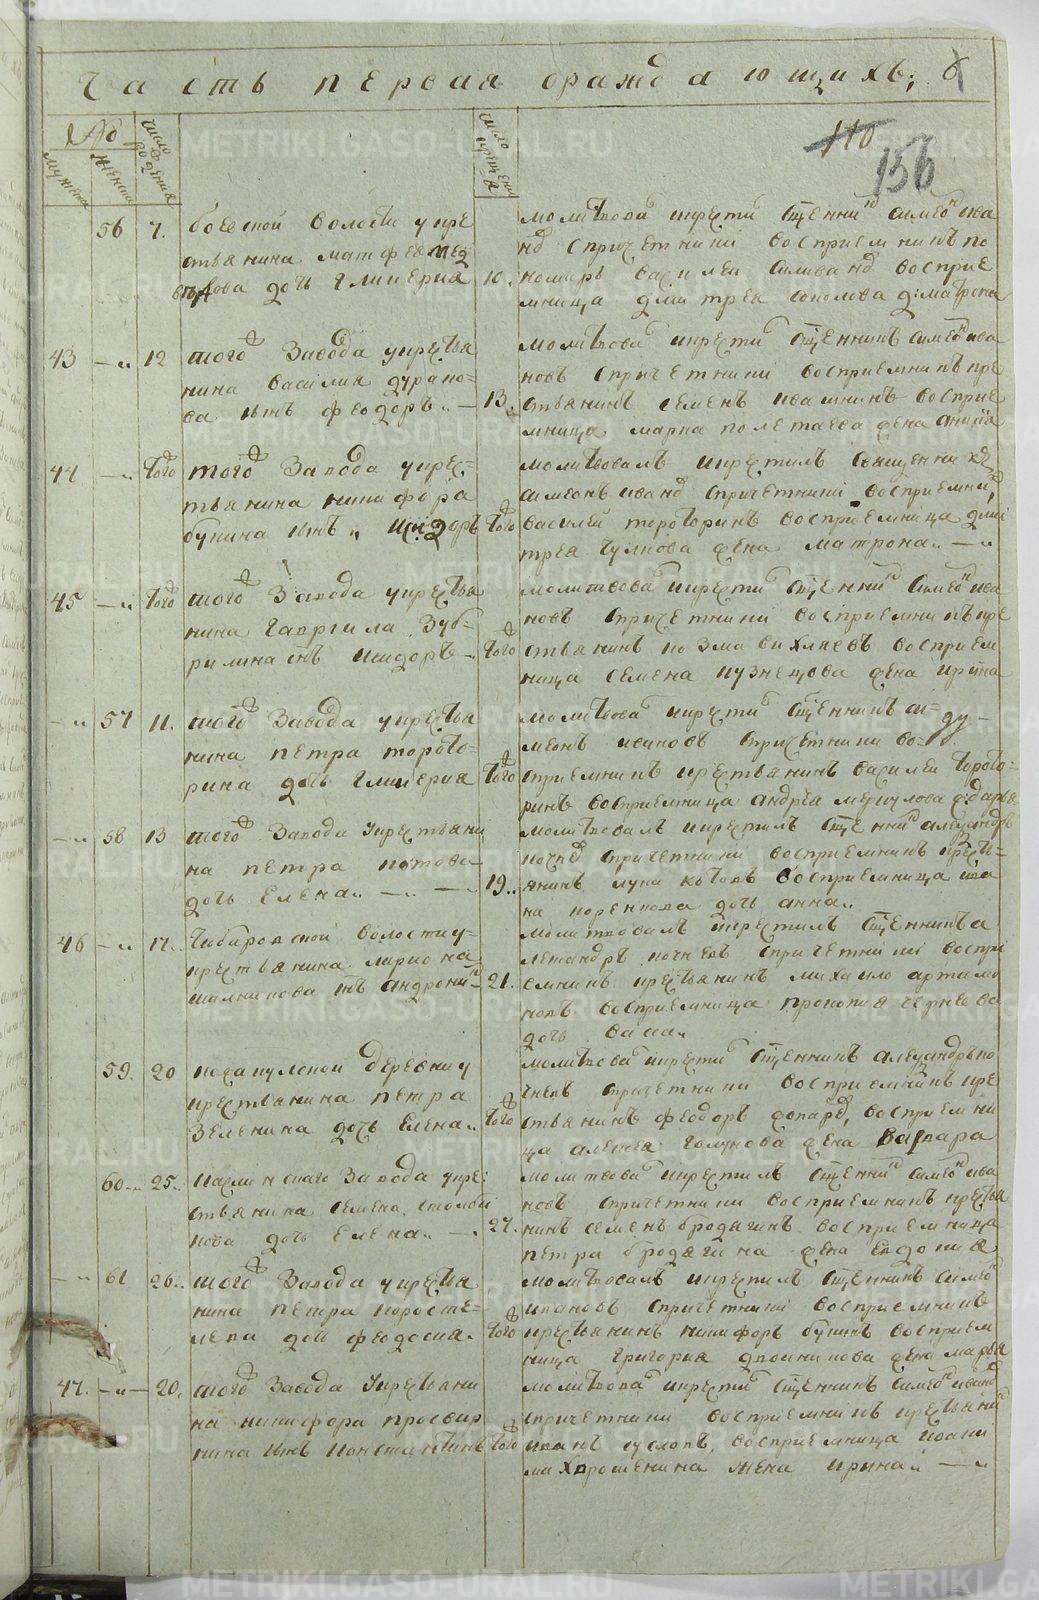 Часть первая ораждающихъ;
110
156
№
мужеска
женска
число рождения
число крещения
56 7. боевской волости у кре
стьянина матфея мед
ведкова дочь Гликерия
10.
молитвова и крести сщенникъ симеонъ ива
новъ спричетники восприемникъ по
номарь василеи силвановъ восприе
мница дмитрея соколова д: матрона
43 12 того завода у крестья
нина василия дурано-
ва сынъ феодоръ
13.
молитвова и крести сщенникъ симеонъ ива
новъ спричетники восприемникъ кре
стьянинъ семенъ ивашкинъ восприе
мница марка полетаева жена анисия
44 того того завода у крес-
тьянина никифора
букина сынъ Исидоръ
того
молитвовалъ и крестилъ священникъ
симеонъ ивановъ спричетники восприемникъ
василей тороторинъ восприемница дми
трея чулкова жена матрона
45 того того завода у крестья
нина гаврила зуб-
рилина сынъ Исидоръ
того
молитвова и крести сщенникъ симеонъ ива
новъ спричетники восприемникъ кре
стьянинъ козма вихляевъ восприем
ница семена кузнецова жена ирина
57 11. того завода у крестья
нина петра торото-
рина дочь Гликерия
того
молитвова и крести сщенникъ си-
меонъ ивановъ спричетники во-
сприемникъ крестьянинъ василеи торото-
ринъ восприемница андрея меркулова ж: дарья
58 13 того завода у крестьяни
на петра котова
дочь Елена
19.
молитвовалъ и крестилъ сщенникъ александръ
почкъ спричетники восприемникъ кресть-
янинъ лука котовъ восприемница ива
на коренкова дочь анна
46 17. чюбаровской волости у
крестьянина лариона
шилникова сынъ андроникъ
21.
молитвовалъ и крестилъ сщенникъ а
лександръ почкевъ спричетники воспри
емникъ крестьянинъ михаило артамо
новъ восприемница прокопия чернаева
дочь васа
59. 20 кочакулской деревни у
крестьянина петра
зеленина дочь Елена
того
молитвова и крести сщенникъ александръ по
чкевъ спричетники восприемникъ кре
стьянинъ феодоръ восприемни
ца алексея голунова жена варвара
60 25. каслинскаго завода у кре
стьянина семена столби
кова дочь Елена
27.
молитвова и крестилъ сщенникъ симеонъ ива
новъ спричетники восприемникъ крестья
нинъ семенъ бродягинъ восприемница
петра бродягина жена евдокия
61 26. того завода у крестья
нина петра коросте-
лева дочь феодосия
того
молитвовалъ и крестилъ сщенникъ симеонъ
ивановъ спричетники восприемникъ
крестьянинъ никифоръ букинъ восприем
ница григория двоиникова жена марья
47. 20. того завода у крестьяни
на никифора просвир
нина сынъ константинъ
того
молитвова и крести сщенникъ симеонъ ивановъ
спричетники восприемникъ крестьянинъ
иванъ сусловъ, восприемница иоаки
ма хорошенина жена ирина